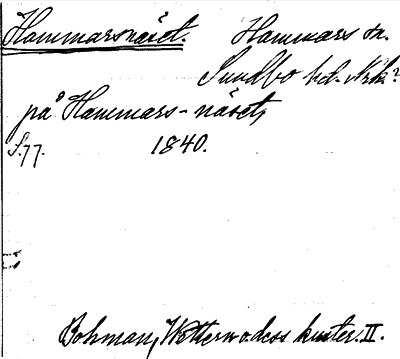 Hammarsnäset. Hammars sn.
Sundbo hd. Nrk.
på Hammars-näset,
S. 77. 1840.
Bohman, Wettern o. dess kuster. II.